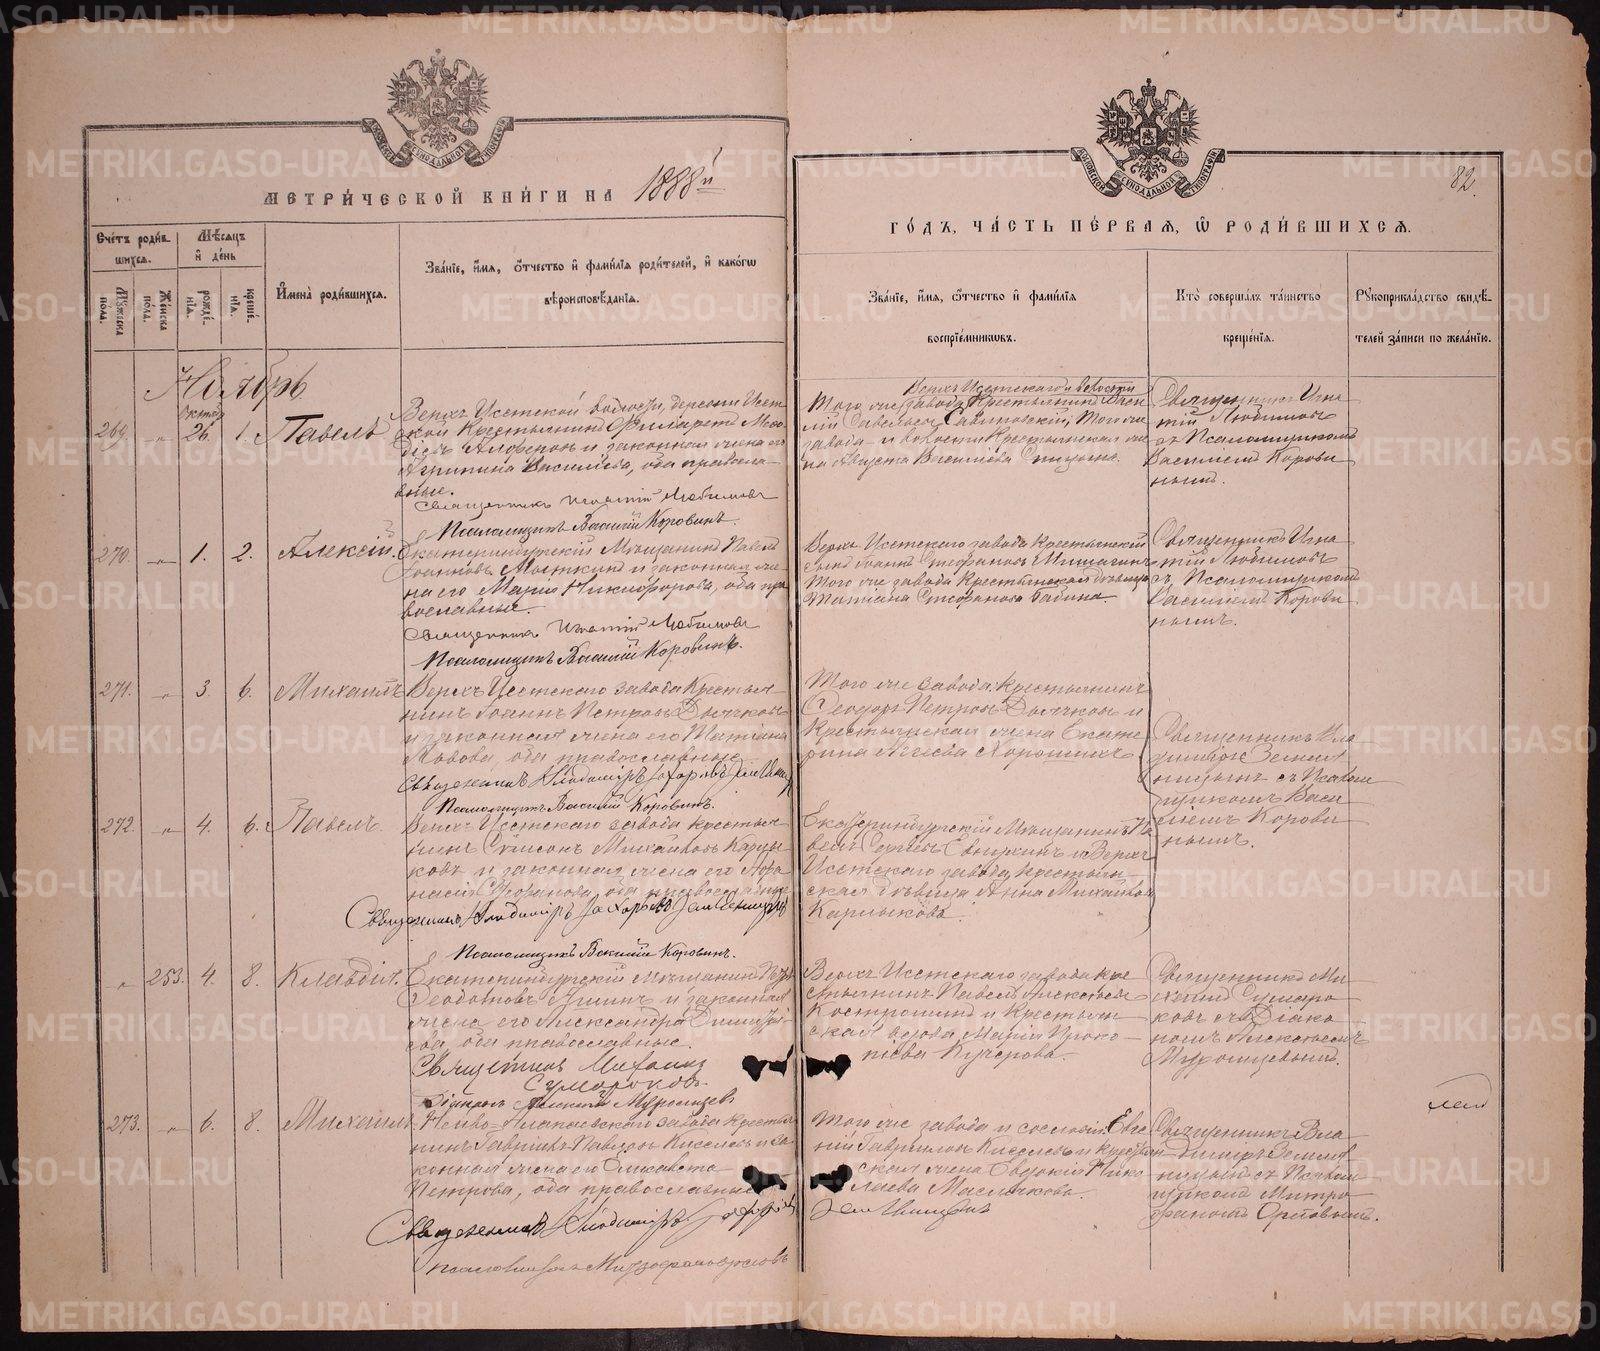 МЕТРИ́ЧЕСКОЙ КНИ́ГИ НА 1888й
ГО́ДЪ, ЧА́СТЬ ПЕ́РВАЯ, Ѡ РОДИ́ВШИХСЯ.
82.
Сче́тъ роди́в-
шихся.
Мѣ́сяцъ
и҆ де́нь
И҆мена̀ роди́вшихся.
Зва́нїе, и҆́мя, ѻ҆́тчество и҆ фами́лїя роди́телей, и҆ како́гѡ
вѣроисповѣ́данїя.
Мꙋ́жеска
по́ла.
Же́нска
по́ла.
рожде́-
нїя.
креще́-
нїя.
Зва́нїе, и҆́мя, ѻ҆́тчество и҆ фами́лїя
воспрїе́мникѡвъ.
Кто̀ соверша́лъ та́инство
креще́нїя.
Рꙋкоприкла́дство свидѣ́-
телей за́писи по жела́нїю.
Ноябрь
269. „ Октяб 26. 1. Павелъ
Верхъ Исетской волости, деревни Исет
ской крестьянинъ Филаретъ
Алферовъ и законная жена его
Агрипина Васильева, оба правосла-
вные.
Священникъ Игнатій Любимовъ
Псаломщикъ Василій Коровинъ.
Верхъ Исетскаго и волости
Того же завода крестьянинъ Васи
лій Савельевъ; того же
завода и волости крестьянская же
на Августа Васильева Спицына.
Священникъ Игна
тій Любимовъ
съ Псаломщикомъ
Василіемъ Корови
нымъ.
270. „ 1. 2. Алексій.
Екатеринбургскій мѣщанинъ Павелъ
Іоанновъ и законная же
на его Марія Никифорова, оба пра
вославные.
Священникъ Игнатій Любимовъ
Псаломщикъ Василій Коровинъ.
Верхъ Исетскаго завода крестьянскій
сынъ Іоаннъ Стефановъ
того же завода крестьянская дѣвица
Татіана Стефанова Бабина.
Священникъ Игна
тій Любимовъ
съ Псаломщикомъ
Василіемъ Корови
нымъ.
271. „ 3. 6. Михаилъ
Верхъ Исетскаго завода крестья
нинъ Іоаннъ Петровъ Дьячковъ
и законная жена его Татіана
Львова, оба православные
Священникъ Владиміръ Земляницынъ
Псаломщикъ Василій Коровинъ.
Того же завода крестьянинъ
Ѳеодоръ Петровъ Дьячковъ и
крестьянская жена Екате
рина Хорошихъ
Священникъ Вла
диміръ Земля
ницынъ съ Псалом
щикомъ Васи
ліемъ Корови
нымъ.
272. „ 4. 6. Павелъ.
Верхъ Исетскаго завода крестья
нинъ Самсонъ Михайловъ Кармы
ковъ и законная жена его Афа
насія Стефанова, оба православные
Псаломщикъ Василій Коровинъ.
Екатеринбургскій мѣщанинъ Па
велъ Сергѣевъ и Верхъ
Исетскаго завода крестьян
ская дѣвица Анна Михайлова
Кармыкова.
„ 253. 4. 8. Клавдія.
Екатеринбургскій мѣщанинъ Петръ
Ѳедотовъ и законная
жена его Александра Димитрі-
ева, оба православные.
Священникъ Михаилъ
Сумароковъ.
Діаконъ Алексій Муромцевъ
Верхъ Исетскаго завода кре
стьянинъ Павелъ Алексѣевъ
Костроминъ и крестьян
ская вдова Марія Проко
піева Кучерова.
Священникъ Ми
хаилъ Сумаро
ковъ съ Діако
номъ Алексіемъ
Муромцевымъ.
273. „ 6. 8. Михаилъ
Нейво-Алапаевскаго завода крестья
нинъ Гавріилъ Павловъ Киселевъ и за
конная жена его Елисавета
Петрова, оба православные
Того же завода и сословія Евге
ній Гавриловъ Киселевъ и крестьян
ская жена Евдокія Нико
лаева Маслачкова.
Земляницынъ
Священникъ Вла
диміръ Земля
ницынъ съ Псалом
щикомъ Митро
фаномъ Орловымъ.
METRIKI.GASO-URAL.RU